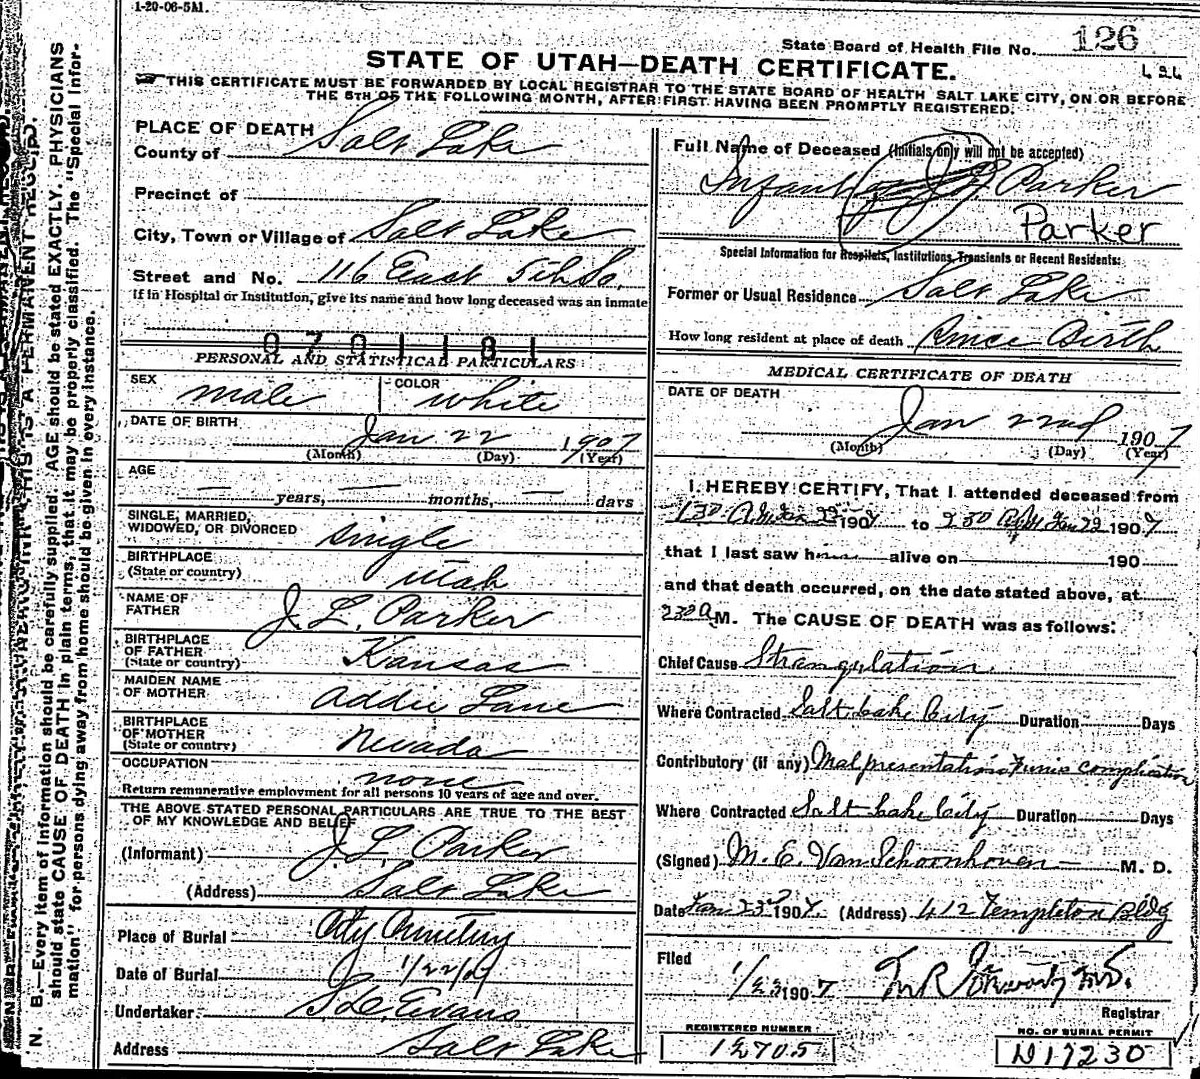 1-20-06-5M.
State Board of Health File No. 126
STATE OF UTAH—DEATH CERTIFICATE.
THIS CERTIFICATE MUST BE FORWARDED BY LOCAL REGISTRAR TO THE STATE BOARD OF HEALTH SALT LAKE CITY, ON OR BEFORE
THE 5TH OF THE FOLLOWING MONTH, AFTER FIRST HAVING BEEN PROMPTLY REGISTERED.
N. B.—Every item of information should be carefully supplied. AGE should be stated EXACTLY. PHYSICIANS
should state CAUSE OF DEATH in plain terms, that it may be properly classified. The "Special Infor-
mation" for persons dying away from home should be given in every instance.
PLACE OF DEATH
County of Salt Lake
Precinct of
City, Town or Village of Salt Lake
Street and No. 116 East 5th So.
If in Hospital or Institution, give its name and how long deceased was an inmate
0701181
PERSONAL AND STATISTICAL PARTICULARS
SEX male COLOR white
DATE OF BIRTH Jan 22 1907
(Month) (Day) (Year)
AGE
— years, — months, — days
SINGLE, MARRIED,
WIDOWED, OR DIVORCED single
BIRTHPLACE
(State or country) Utah
NAME OF
FATHER J. L. Parker
BIRTHPLACE
OF FATHER
(State or country) Kansas
MAIDEN NAME
OF MOTHER Addie Lane
BIRTHPLACE
OF MOTHER
(State or country) Nevada
OCCUPATION none
Return remunerative employment for all persons 10 years of age and over.
THE ABOVE STATED PERSONAL PARTICULARS ARE TRUE TO THE BEST
OF MY KNOWLEDGE AND BELIEF
(Informant) J. L. Parker
(Address) Salt Lake
Place of Burial City Cemetery
Date of Burial 1/22/07
Undertaker Evans
Address Salt Lake
Full Name of Deceased (Initials only will not be accepted)
Infant Parker
Parker
Special Information for Hospitals, Institutions, Transients or Recent Residents:
Former or Usual Residence Salt Lake
How long resident at place of death Since Birth
MEDICAL CERTIFICATE OF DEATH
DATE OF DEATH
Jan 22nd 1907
(Month) (Day) (Year)
I HEREBY CERTIFY, That I attended deceased from
1 30 A.M. Jan 22 1907 to 2 30 AM Jan 22 1907
that I last saw him alive on 190
and that death occurred, on the date stated above, at
2 30 A M. The CAUSE OF DEATH was as follows:
Chief Cause Strangulation
Where Contracted Salt Lake City Duration Days
Contributory (if any) Malpresentation Funis complication
Where Contracted Salt Lake City Duration Days
(Signed) M. E. Van Schoonhoven M. D.
Date Jan 23rd 1907. (Address) 412 Templeton Bldg
Filed
1/23 1907
Registrar
REGISTERED NUMBER
12705
NO. OF BURIAL PERMIT
N17230